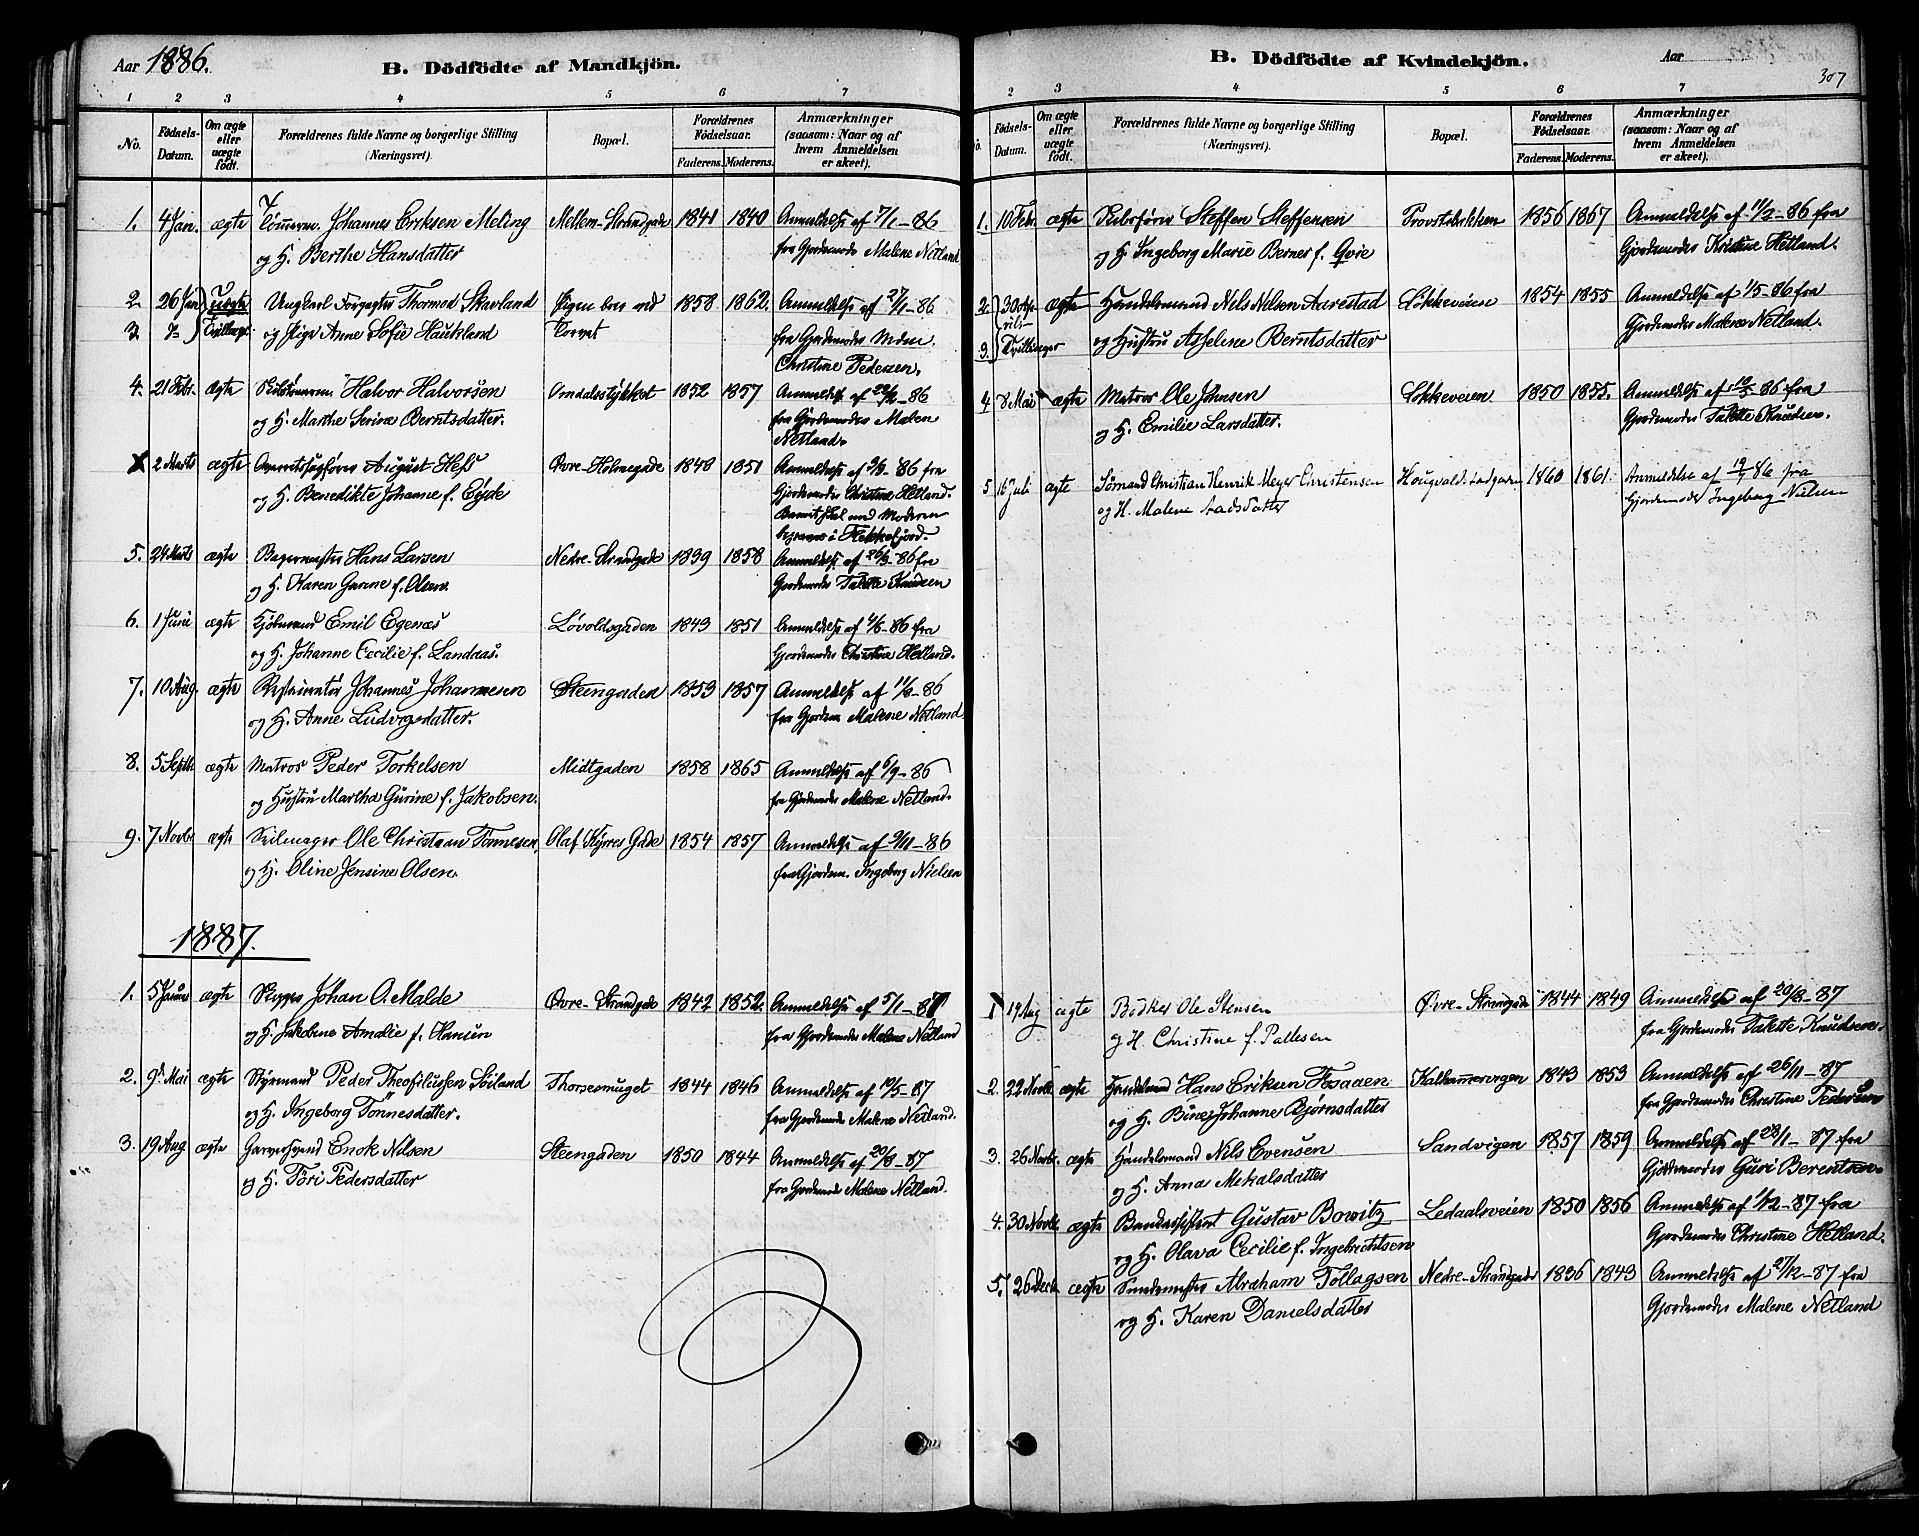 Aar 1886.
B. Dödfödte af Mandkjön.
1 2 3 4 5 6 7
No. Födsels-Datum. Om ægte eller uægte födt. Forældrenes fulde Navne og borgerlige Stilling (Næringsvei). Bopæl. Forældrenes Födselsaar. Faderens. Moderens. Anmærkninger (saasom: Naar og af hvem Anmeldelsen er skeet).
1. 4 Jan. ægte Tömmerm. Johannes Eriksen Meling Mellem-Strandgade 1841 1840 Anmeldelse af 7/1-86
og H. Berthe Hansdatter fra Gjordemoder Malene Netland
2. 26 Jan uægte Ungkarl Forgylder Thormod Skavland Pigen bor ved 1858 1862. Anmeldelse af 27/1-86
3. Tvillinger og Pige Anne Sofie Haukland Torvet fra Gjordemoder Mdm.
Christine Pedersen.
4. 21 Febr. ægte Halvor Halvorsen Omdalsstykket 1852 1857 Anmeldelse af 22/2-86
og H. Marthe Serine Berntsdatter. fra Gjordemoder Malene
Netland.
2 Marts ægte Overretssagfører August Hess Øvre-Holmegade 1848 1851 Anmeldelse af 3/3-86 fra
og H. Benedikte Johanne f. Eyde Gjordemoder Christine Hetland.
Barnet skal med Moderen
begraves i Flekkefjord.
5. 24 Marts ægte Bagermester Hans Larsen Nedre-Strandgade 1839 1858 Anmeldelse af 26/3-86 fra
og H. Karen Gurine f. Olsen. Gjordemoder Talette Knudsen
6. 1 Juni ægte Kjøbmand Emil Egenæs Løvoldsgaden 1843 1851 Anmeldelse af 4/6-86 fra
og H. Johanne Cecilie f. Landaas. Gjordemoder Christine Hetland.
7. 10 Aug. ægte Restauratør Johannes Johannesen Steengaden 1853 1857 Anmeldelse af 11/8-86
og H. Anne Ludvigsdatter. fra Gjordem. Malene Netland.
8. 5 Septbr. ægte Matros Peder Torkelsen Midtgaden 1858 1865 Anmeldelse af 6/9-86
og Hustru Martha Gurine f. Jakobsen. fra Gjordemoder Malene Netland.
9. 7 Novbr. ægte Seilmager Ole Christian Tønnesen. Olaf Kyrres Gade 1854 1857 Anmeldelse af 9/11-86
og H. Oline Jensine Olsen. fra Gjordem. Ingeborg Nielsen
1887.
1. 5 Januar ægte Skipper Johan O. Malde Øvre-Strandgade 1842 1852. Anmeldelse af 5/1-87
og H. Jakobine Amalie f. Hansen fra Gjordemoder Malene Netland
2. 9 Mai ægte Styrmand Peder Theofilussen Søiland Thorsesmuget 1844 1846 Anmeldelse af 10/5-87
og H. Ingeborg Tönnesdatter. fra Gjordemoder Malene Netland.
3. 19 Aug. ægte Garversvend Enok Nilsen Steengaden 1850 1844 Anmeldelse af 20/8-87
og H. Töri Pedersdatter fra Gjordemoder Malene Netland.
B. Dödfödte af Kvindekjön.
Aar
307
2 3 4 5 6 7
No. Födsels-Datum. Om ægte eller uægte födt. Forældrenes fulde Navne og borgerlige Stilling (Næringsvei). Bopæl. Forældrenes Födselsaar. Faderens. Moderens. Anmærkninger (saasom: Naar og af hvem Anmeldelsen er skeet).
1. 10 Febr. ægte Steffen Steffensen Provstebakken 1856 1867 Anmeldelse af 11/2-86 fra
og H. Ingeborg Marie Berner f. Qvie Gjordemoder Kristine Hetland.
2. 30 April ægte Handelsmand Nels Nelsen Aarestad Løkkeveien 1854 1855 Anmeldelse af 1/5-86 fra
3. Tvillinger og Hustru Asselene Berntsdatter Gjordemoder Malene Netland.
4 8 Mai ægte Matros Ole Johnsen Løkkeveien 1850 1855. Anmeldelse af 10/5-86 fra
og H. Emilie Larsdatter. Gjordemoder Talette Knudsen.
5 16 Juli ægte Sømand Christian Henrik Meyer Christensen Hougvalds 1860 1861. Anmeldelse af 19/7 86 fra
og H. Malene Gjordemoder Ingeborg Nielsen
1 19 Aug ægte Bødker Ole Stensen Øvre-Strandgade 1844 1849 Anmeldelse af 20/8-87
og H. Christine f. Pallesen fra Gjordemoder Talette Knudsen.
2. 22 Novbr. ægte Handelsmand Hans Eriksen Tosaaen Kalhammervigen 1843 1853 Anmeldelse af 26/11-87
og H. Bine Johanne Bjørnsdatter fra Gjordemoder Christine Pedersen
3. 26 Novbr. ægte Handelsmand Nils Evensen Sandvigen 1857 1859 Anmeldelse af 28/11-87 fra
og H. Anna Mekalsdatter Gjordemoder Guri Berentsen.
4. 30 Novbr. ægte Bankassistent Gustav Bowitz Ledaalsveien 1850 1856 Anmeldelse af 1/12-87 fra
og H. Olava Cecilie f. Ingebrechtsen Gjordemoder Christine Hetland.
5. 26 Decbr. ægte Abraham Tollagsen Nedre-Strandgade 1836 1843 Anmeldelse af 27/12-87 fra
og H. Karen Danielsdatter Gjordemoder Malene Netland